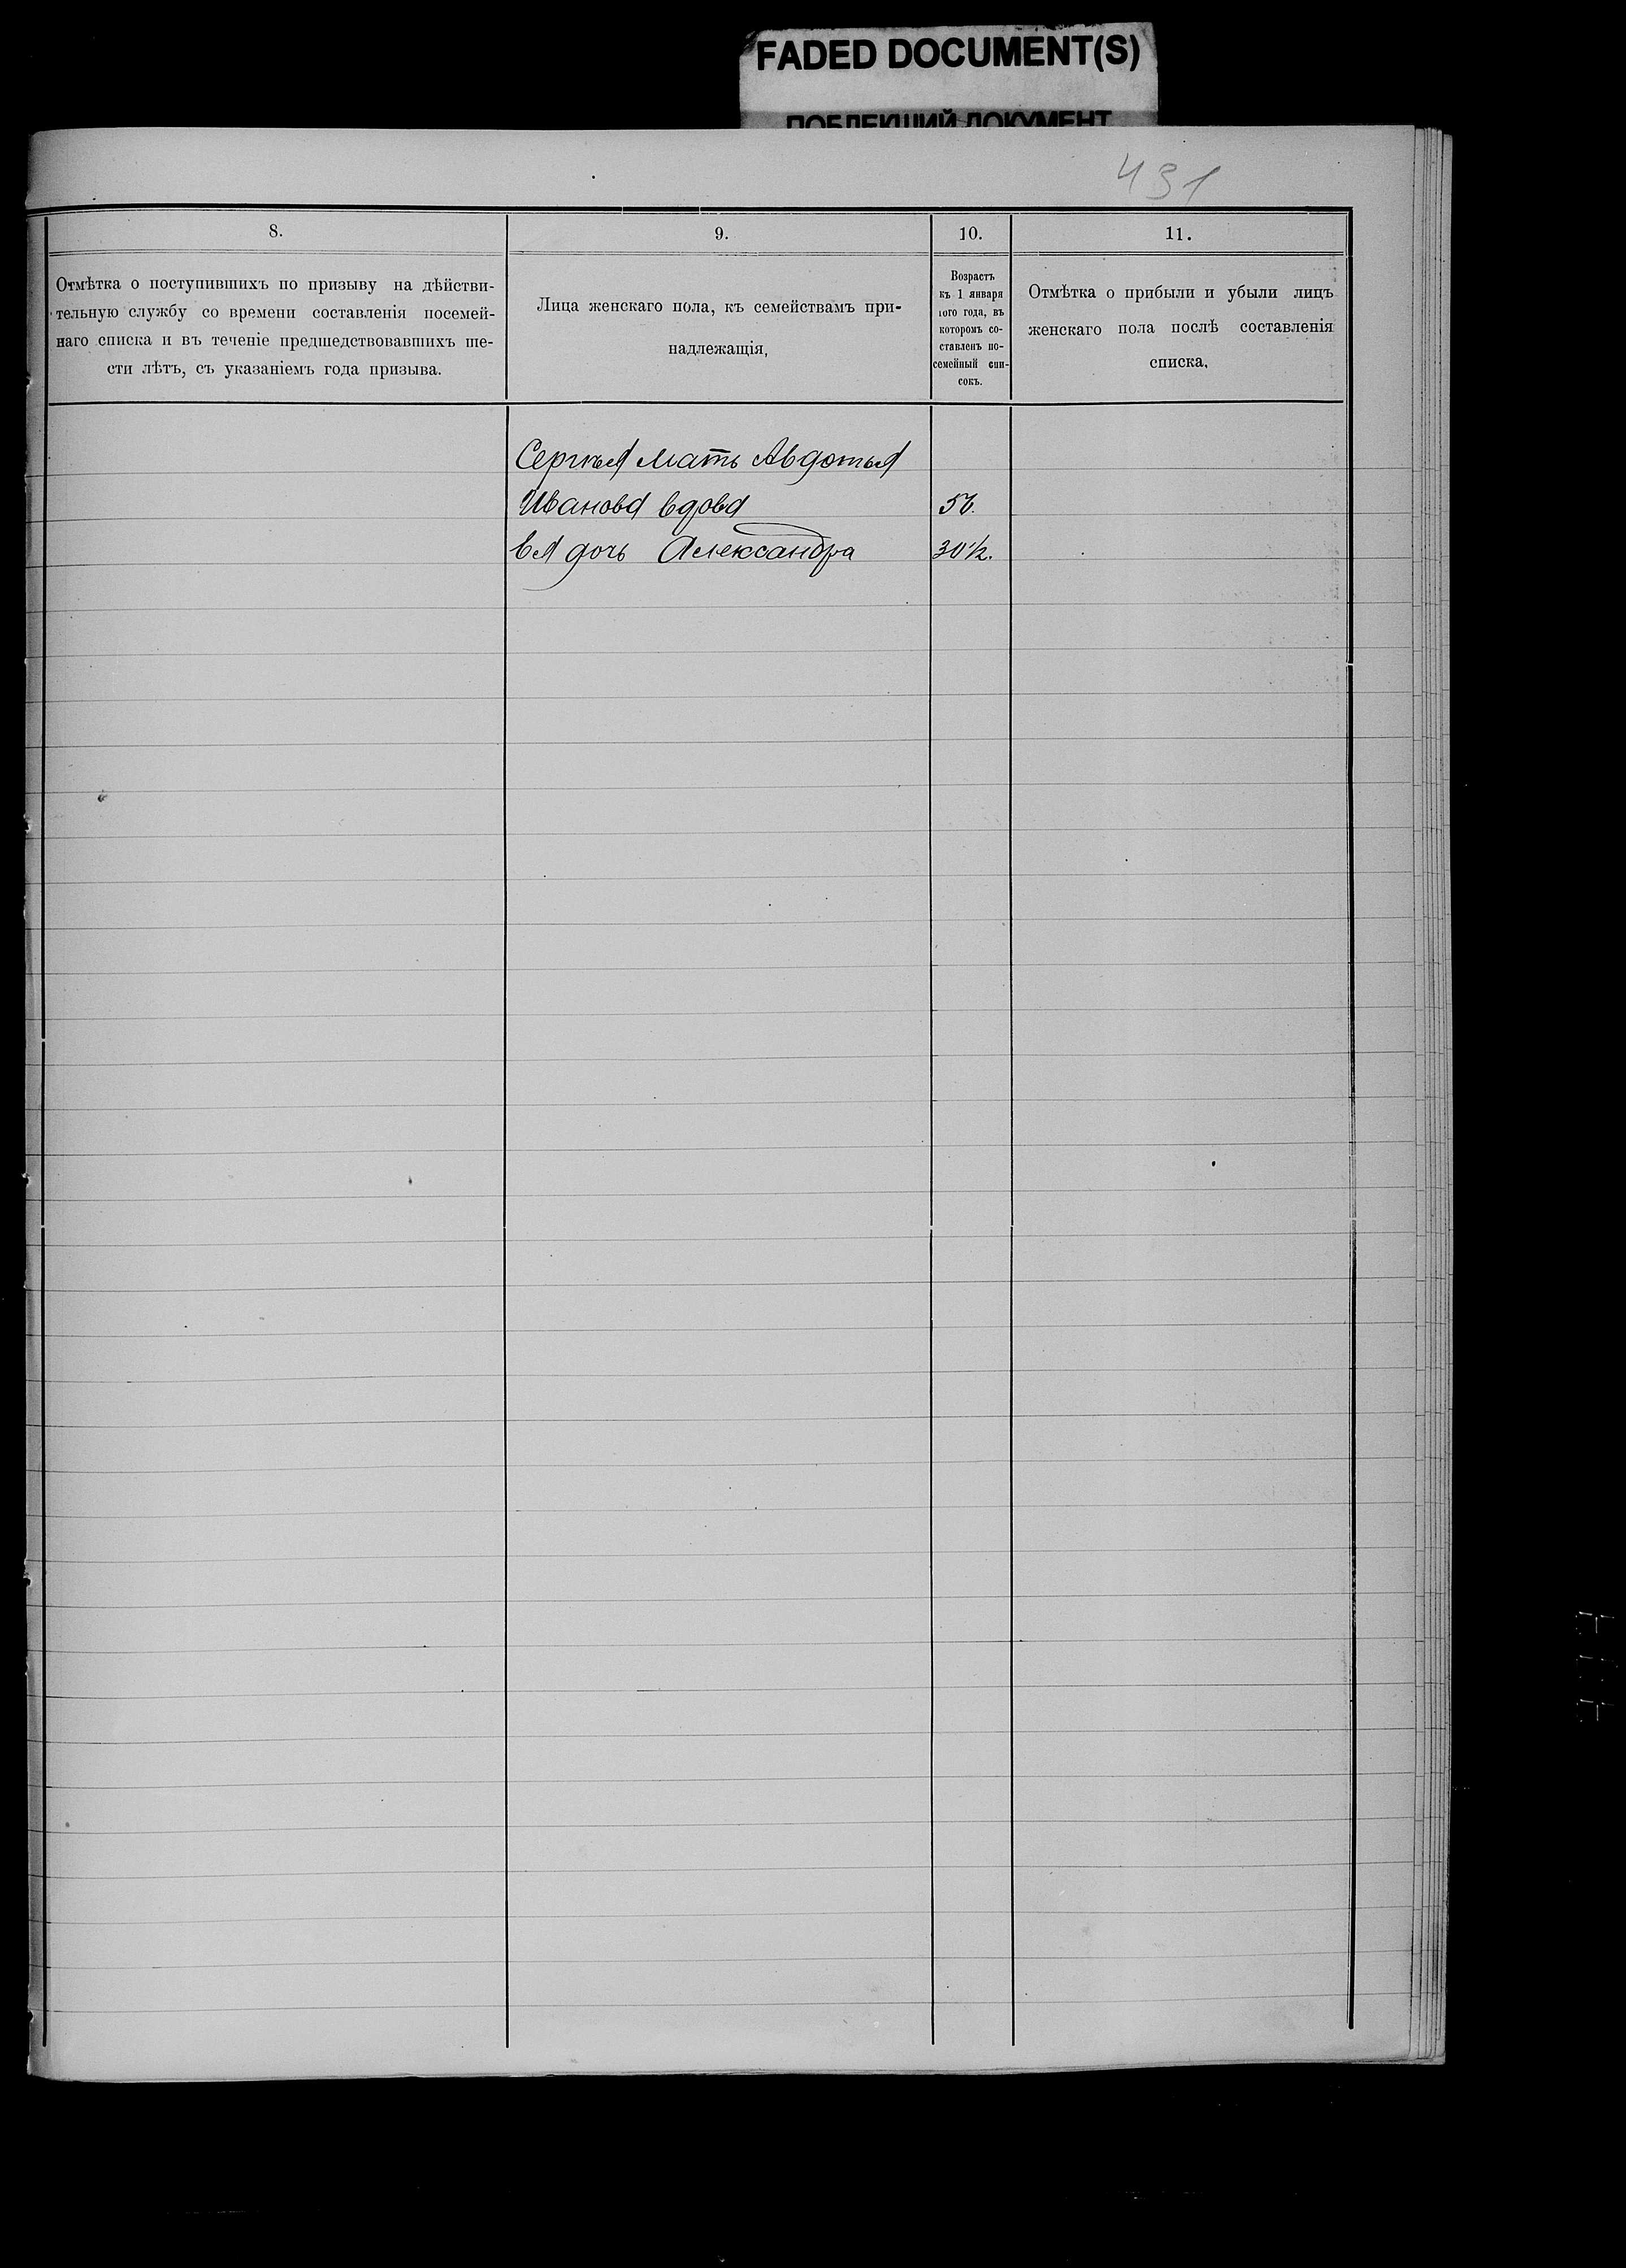 FADED DOCUMENT(S)
ПОБЛЕКШИЙ ДОКУМЕНТ
431
8.
9.
10.
11.
Отмѣтка о поступившихъ по призыву на дѣйстви-
тельную службу со времени составленія посемей-
наго списка и въ теченіе предшедствовавшихъ ше-
сти лѣтъ, съ указаніемъ года призыва.
Лица женскаго пола, къ семействамъ при-
надлежащія,
Возрастъ
къ 1 января
того года, въ
которомъ со-
ставленъ по-
семейный спи-
сокъ.
Отмѣтка о прибыли и убыли лицъ
женскаго пола послѣ составленія
списка.
Сергѣя мать Авдотья
Иванова вдова
ея дочь Александра 30½.